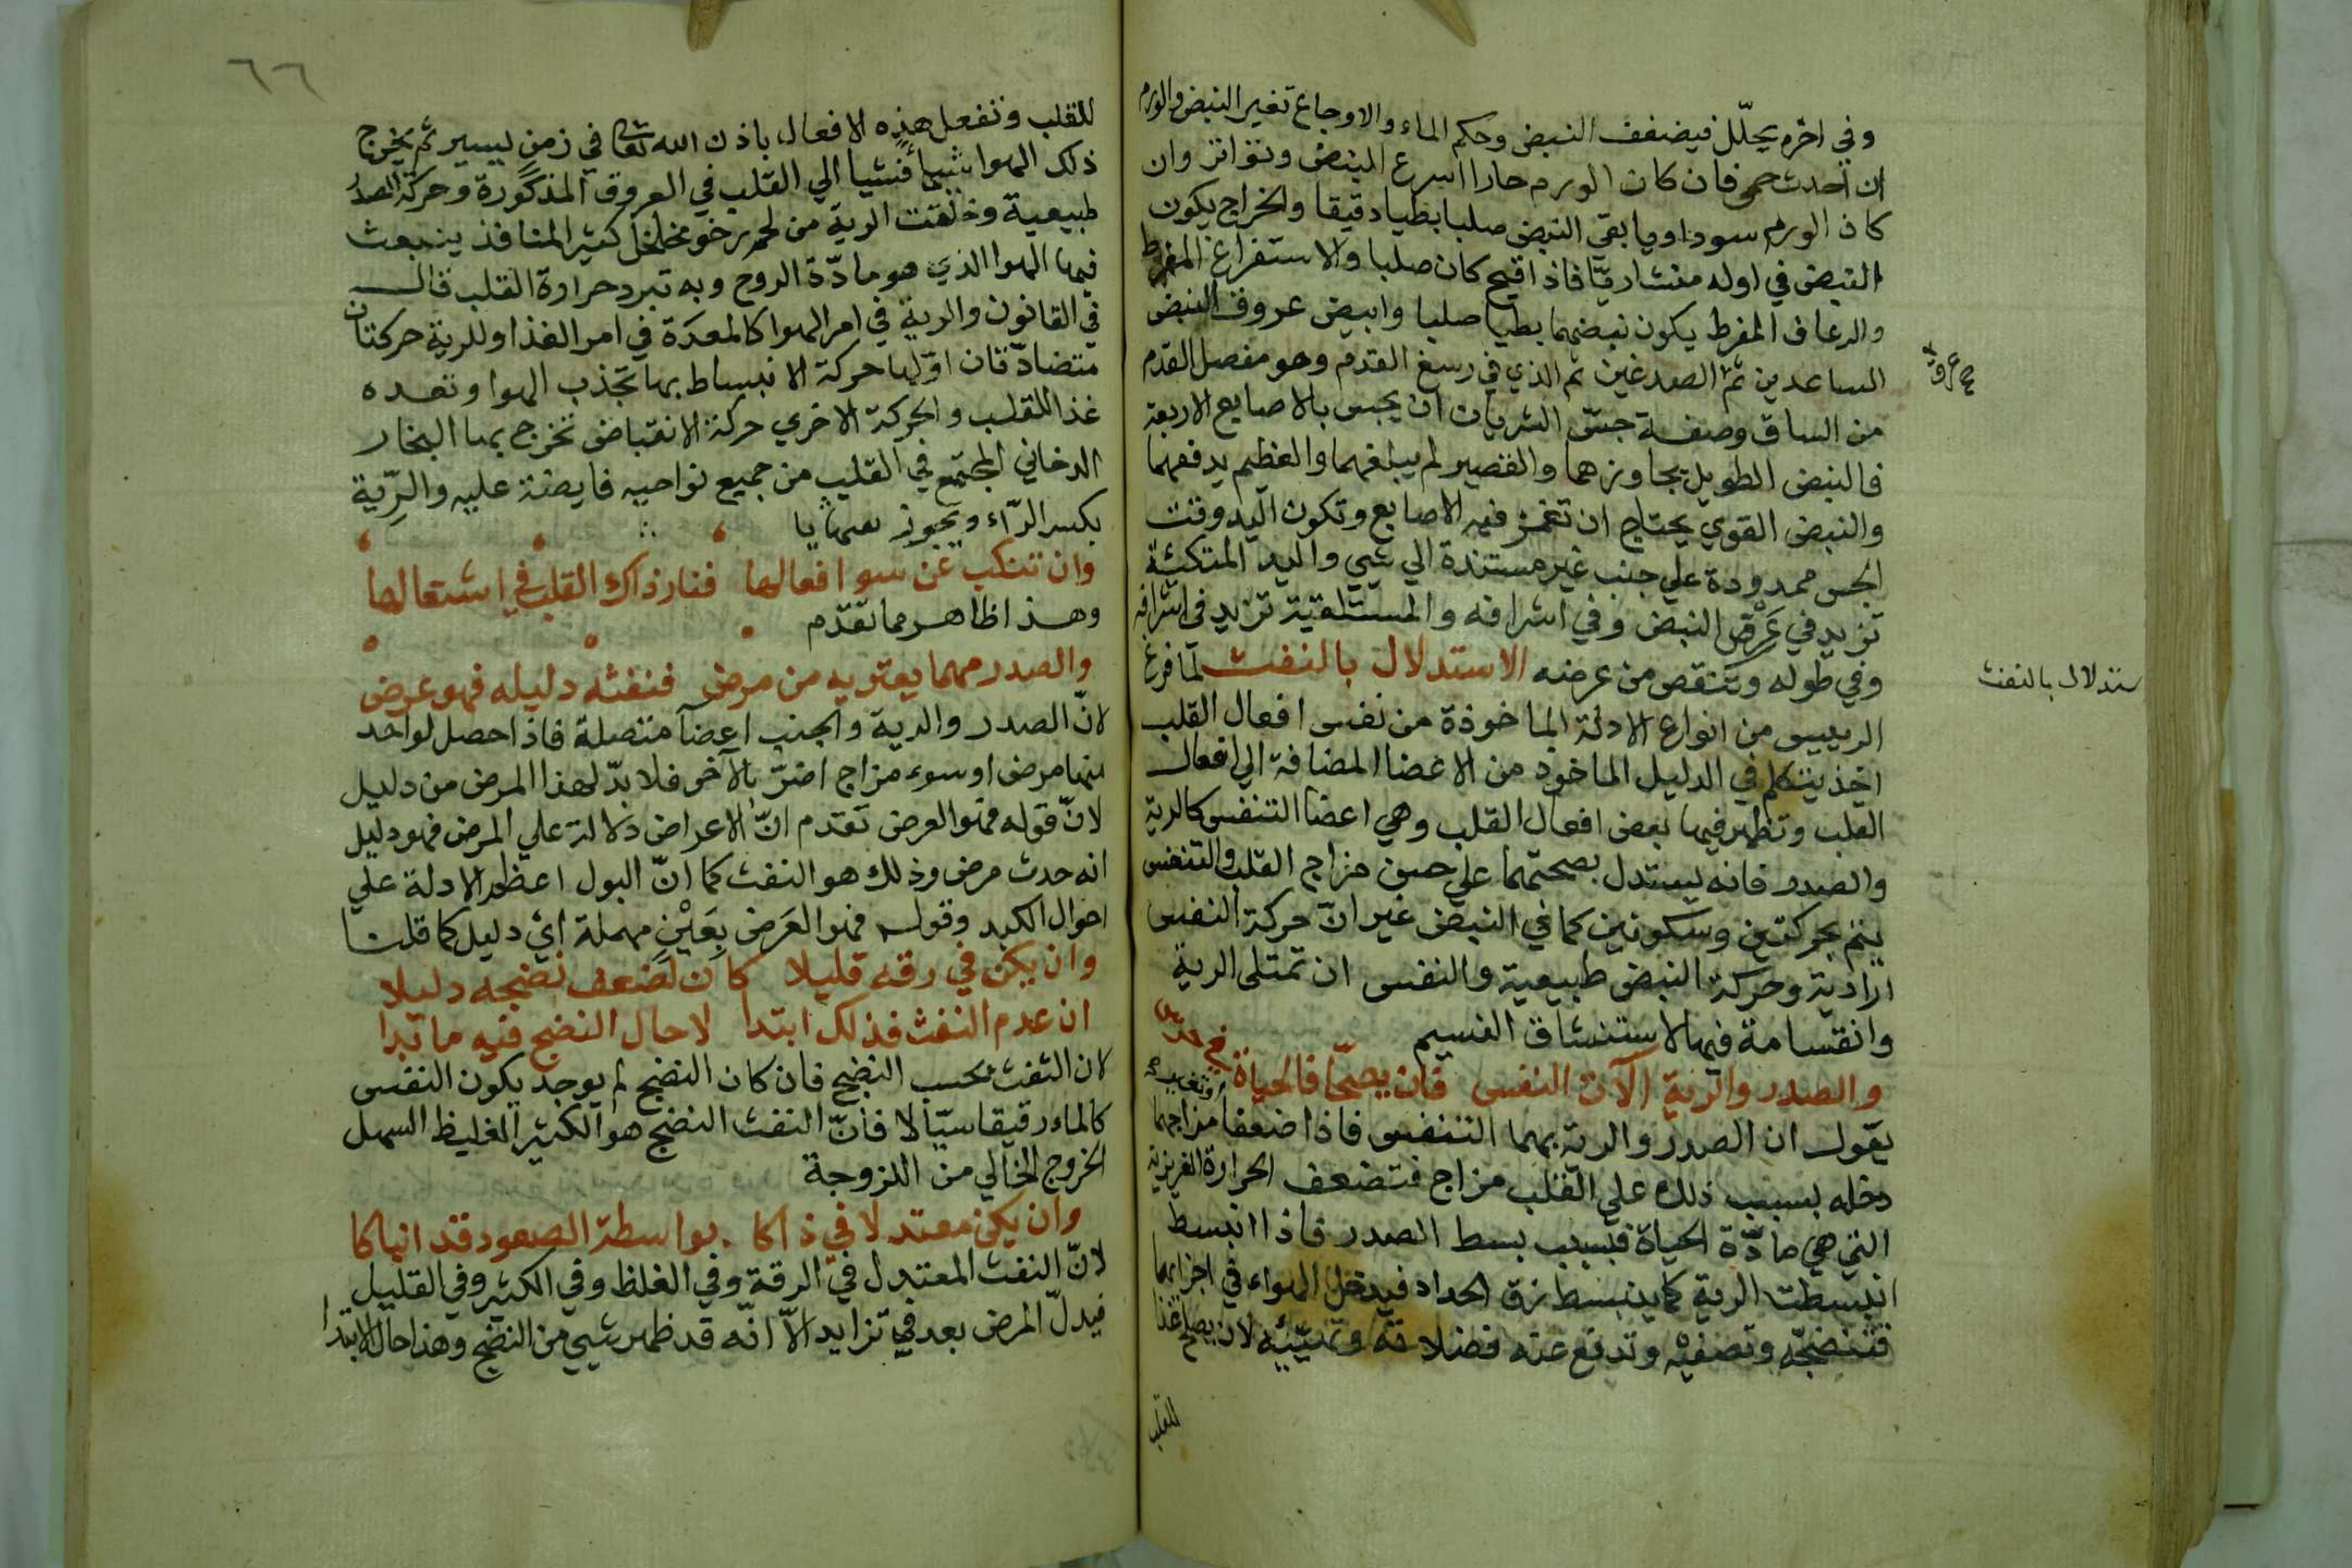 وفي اخره يحلّل فيضعف النبض وحكم الماء والاوجاع تغير النبض والورم
ان احدث حمى فان كان الورم حارا اسرع النبض وتواتر وان
كان الورم سوداويا بقي النبض صلبا بطيا دقيقا والخراج يكون
النبض في اوله منشاريّا فاذا قيح كان صلبا والاستفراغ المفرط
والرعاف المفرط يكون نبضهما بطيا صلبا وابيض عروق النبض
الساعدين ثمّ الصدغين ثم الذي في رسغ القدم وهو مفصل القدم
من الساق وصفة جسّ الشريان ان يجس بالاصابع الاربعة
فالنبض الطويل يجاوزهما والقصير لم يبلغهما والعظيم يدفعهما
والنبض القوي يحتاج ان تغمز فيه الاصابع وتكون اليد وقت
الجس ممدودة علي جنب غير مستندة الي شيي واليد المتكئة
تزيد في عَرْض النبض وفي اشرافه والمستلقية تزيد في اشرافه
وفي طوله وتنقص من عرضه الاستدلال بالنفث لمّا فرغ
ستدلال بالنفث
الرييس من انواع الادلة الماخوذة من نفس افعال القلب
اخذ يتكلم في الدليل الماخوذ من الاعضا المضافة الي افعال
القلب وتظهر فيها بعض افعال القلب وهي اعضا التنفس كالرية
والصدر فانه يستدل بصحتهما علي حسن مزاج القلب والتنفس
يتم بحركتين وسكونين كما في النبض غير انّ حركة النفس
ارادية وحركة النبض طبيعية والنفس ان تمتلى الرية
وانقسامة فيها لاستنشاق النسيم
والصدر والرية آلآت النفس فان يصحّا فالحياة في
يقول ان الصدر والرية بهما التنفس فاذا ضعفا مزاجهما
دخله بسبب ذلك علي القلب مزاج فتضعف الحرارة الغريزية
التي هي مادّة الحياة فبسبب بسط الصدر فاذا انبسط
انبسطت الرية كما ينبسط زق الحداد فيدخل الهواء في اجزايها
فتنضجّه وتصفيه وتدفع عنه فضلاته وتهيّيه لان يصلح غذا
للقلب
٦٦
للقلب وتفعل هذه الافعال باذن الله تعالى في زمن يسير ثم يخرج
ذلك الهوا شيأ فشيا الي القلب في العروق المذكورة وحركة الصدر
طبيعية وخلقت الرية من لحم رخو مخلخل كثير المنافذ ينبعث
فيها الهوا الذي هو مادّة الروح وبه تبرد حرارة القلب قال
في القانون والرية في امر الهوا كالمعدة في امر الغذا وللرية حركتان
متضادّتان اوّلها حركة الانبساط بها تجذب الهوا وتعده
غذا للقلب والحركة الاخري حركة الانقباض تخرج بها البخار
الدخاني المجتمع في القلب من جميع نواحيه فايضة عليه والرّية
بكسر الرّاء ويجوز
وان تنكب عن سو افعالها فنار ذاك القلب في اشتعالها
وهذا ظاهر مما تقدّم
والصدر مهما يعتريه من مرض فنفثه دليله فهو عرض
لانّ الصدر والرية والجنب اعضا متصلة فاذا حصل لواحد
منها مرض او سوء مزاج اضرّ بالآخر فلا بدّ لهذا المرض من دليل
لانّ قوله فهو العرض تقدم انّ الاعراض دلالة علي المرض فهو دليل
انه حدث مرض وذلك هو النفث كما انّ البول اعظم الادلة علي
احوال الكبد وقوله فهو العَرَض بعَيْن مهملة اي دليل كما قلنا
وان يكن في رقه قليلا كان لضعف نضجه دليلا
ان عدم النفث فذلك ابتدا لا حال النضج فيه ما بدا
لان النفث بحسب النضج فان كان النضج لم يوجد يكون النفس
كالماء رقيقا سيّالا فانّ النفث النضج هو الكثير الغليظ السهل
الخروج الخالي من اللزوجة
وان يكن معتدلا في ذاكا بواسطة الصعود قد انباكا
لانّ النفث المعتدل في الرقة وفي الغلظ وفي الكثير وفي القليل
فيدلّ المرض بعد في تزايد الاّ انّه قد ظهر شيي من النضج وهذا حال الابتدا